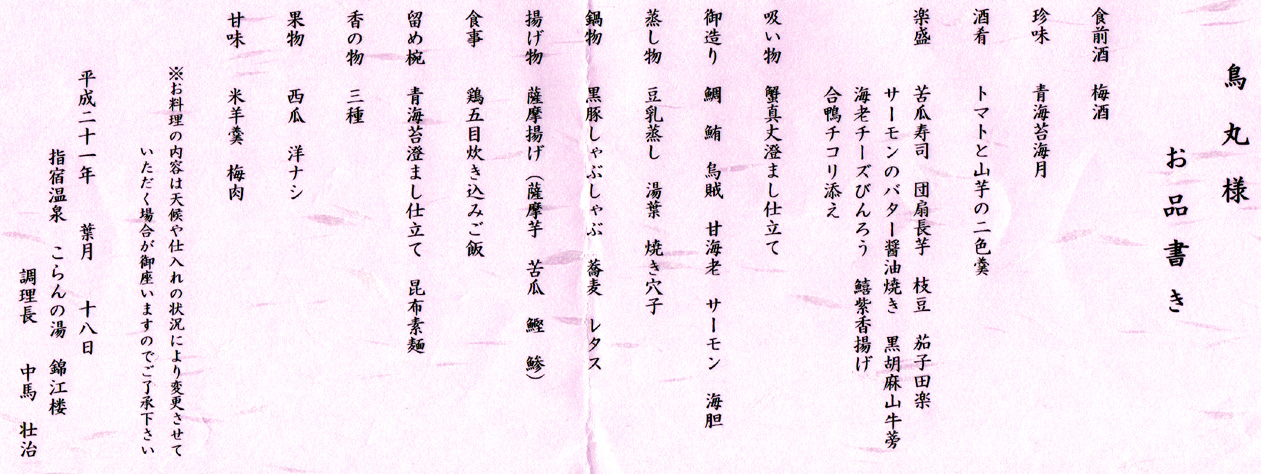 鳥丸様
お品書き
食前酒 梅酒
珍味 青海苔海月
酒肴 トマトと山芋の二色羹
楽盛 苦瓜寿司 団扇長芋 枝豆 茄子田楽
サーモンのバター醤油焼き 黒胡麻山牛蒡
海老チーズびんろう 鱚紫香揚げ
合鴨チコリ添え
吸い物 蟹真丈澄まし仕立て
御造り 鯛 鮪 烏賊 甘海老 サーモン 海胆
蒸し物 豆乳蒸し 湯葉 焼き穴子
鍋物 黒豚しゃぶしゃぶ 蕎麦 レタス
揚げ物 薩摩揚げ(薩摩芋 苦瓜 鰹 鯵)
食事 鶏五目炊き込みご飯
留め椀 青海苔澄まし仕立て 昆布素麺
香の物 三種
果物 西瓜 洋ナシ
甘味 米羊羹 梅肉
※お料理の内容は天候や仕入れの状況により変更させて
いただく場合が御座いますのでご了承下さい
平成二十一年 葉月 十八日
指宿温泉 こらんの湯 錦江楼
調理長 中馬 壮治